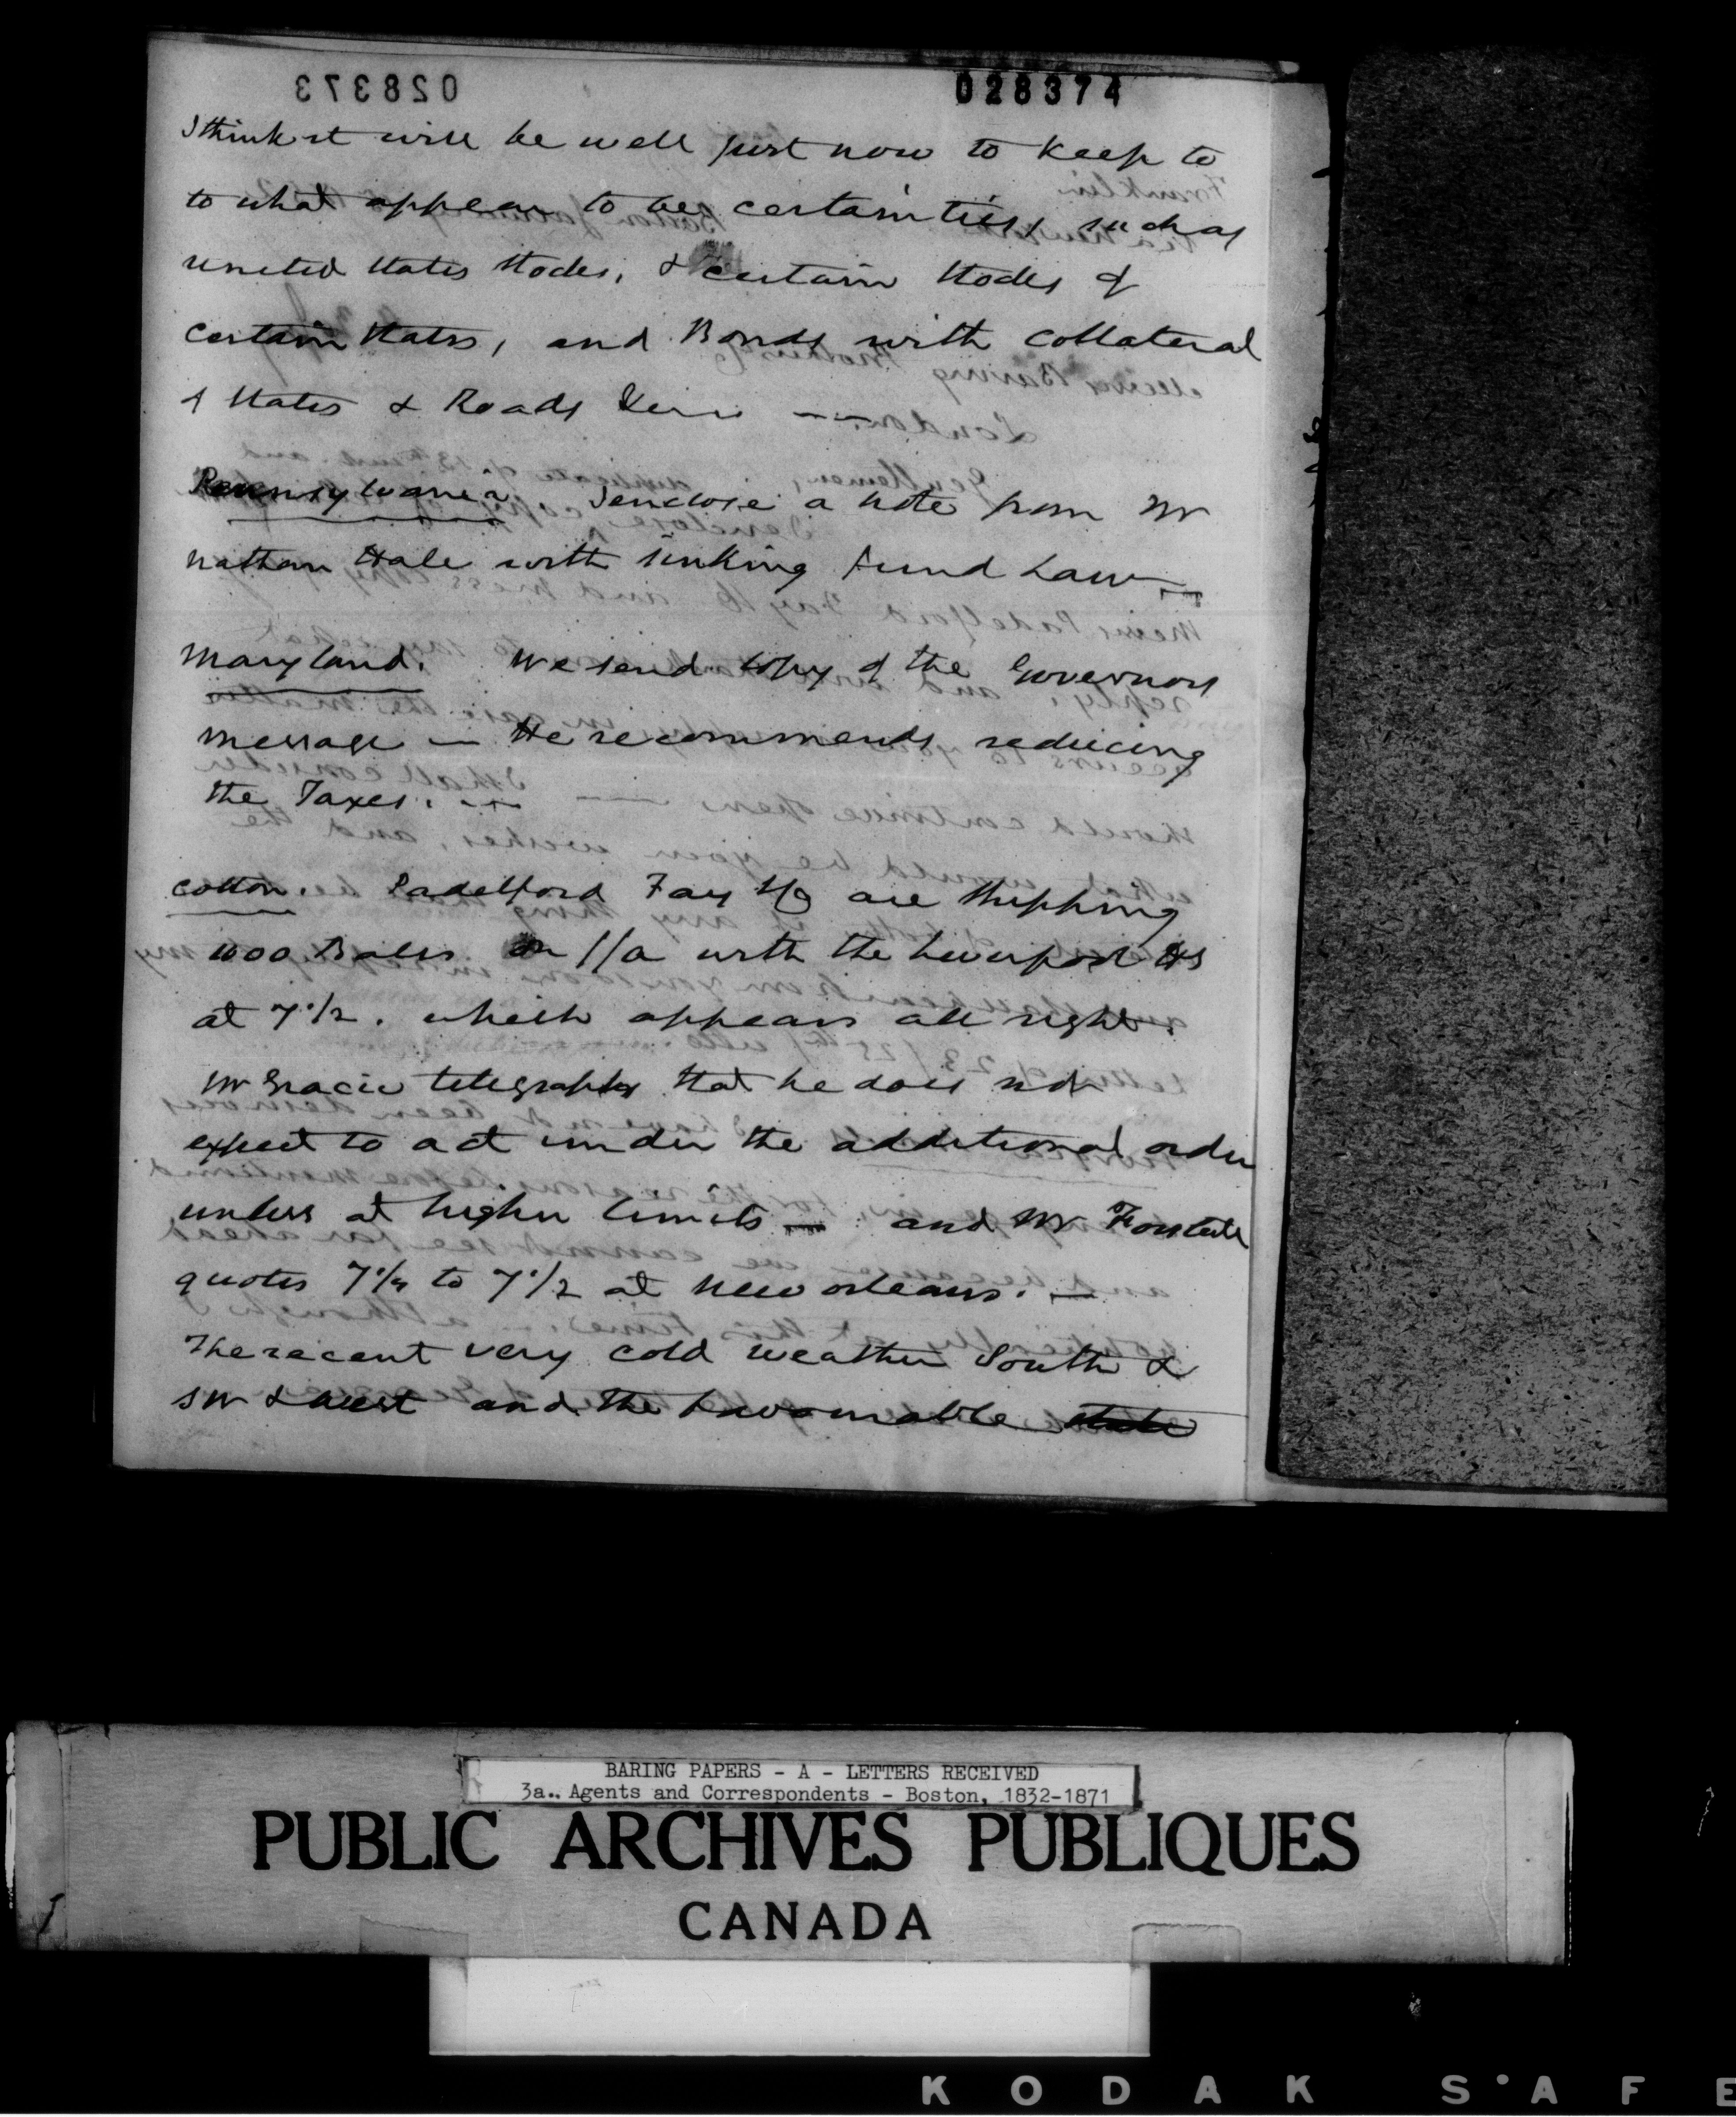 028373
028374
I think it will be well just now to keep to
to what appear to be certainties, such as
united States Stocks, & certain Stocks of
certain States, and Bonds with collateral
of States & Roads Liens —
Pennsylvania. I enclose a note from Mr
Nathan Hale with sinking Fund Law —
Maryland. We send copy of the Governors
message — He recommends reducing
the Taxes. —
Cotton. Padelford Fay & Co are shipping
1000 Bales on J/a with the Liverpool Hs
at 7 1/2. which appears all right.
Mr Gracie telegraphs that he does not
expect to act under the additional order
unless at higher limits — and Mr Forstall
quotes 7 1/4 to 7 1/2 at New Orleans. —
The recent very cold weather South &
SW & West and the favourable
BARING PAPERS - A - LETTERS RECEIVED
3a.. Agents and Correspondents - Boston, 1832-1871
PUBLIC ARCHIVES PUBLIQUES
CANADA
KODAK SAFE